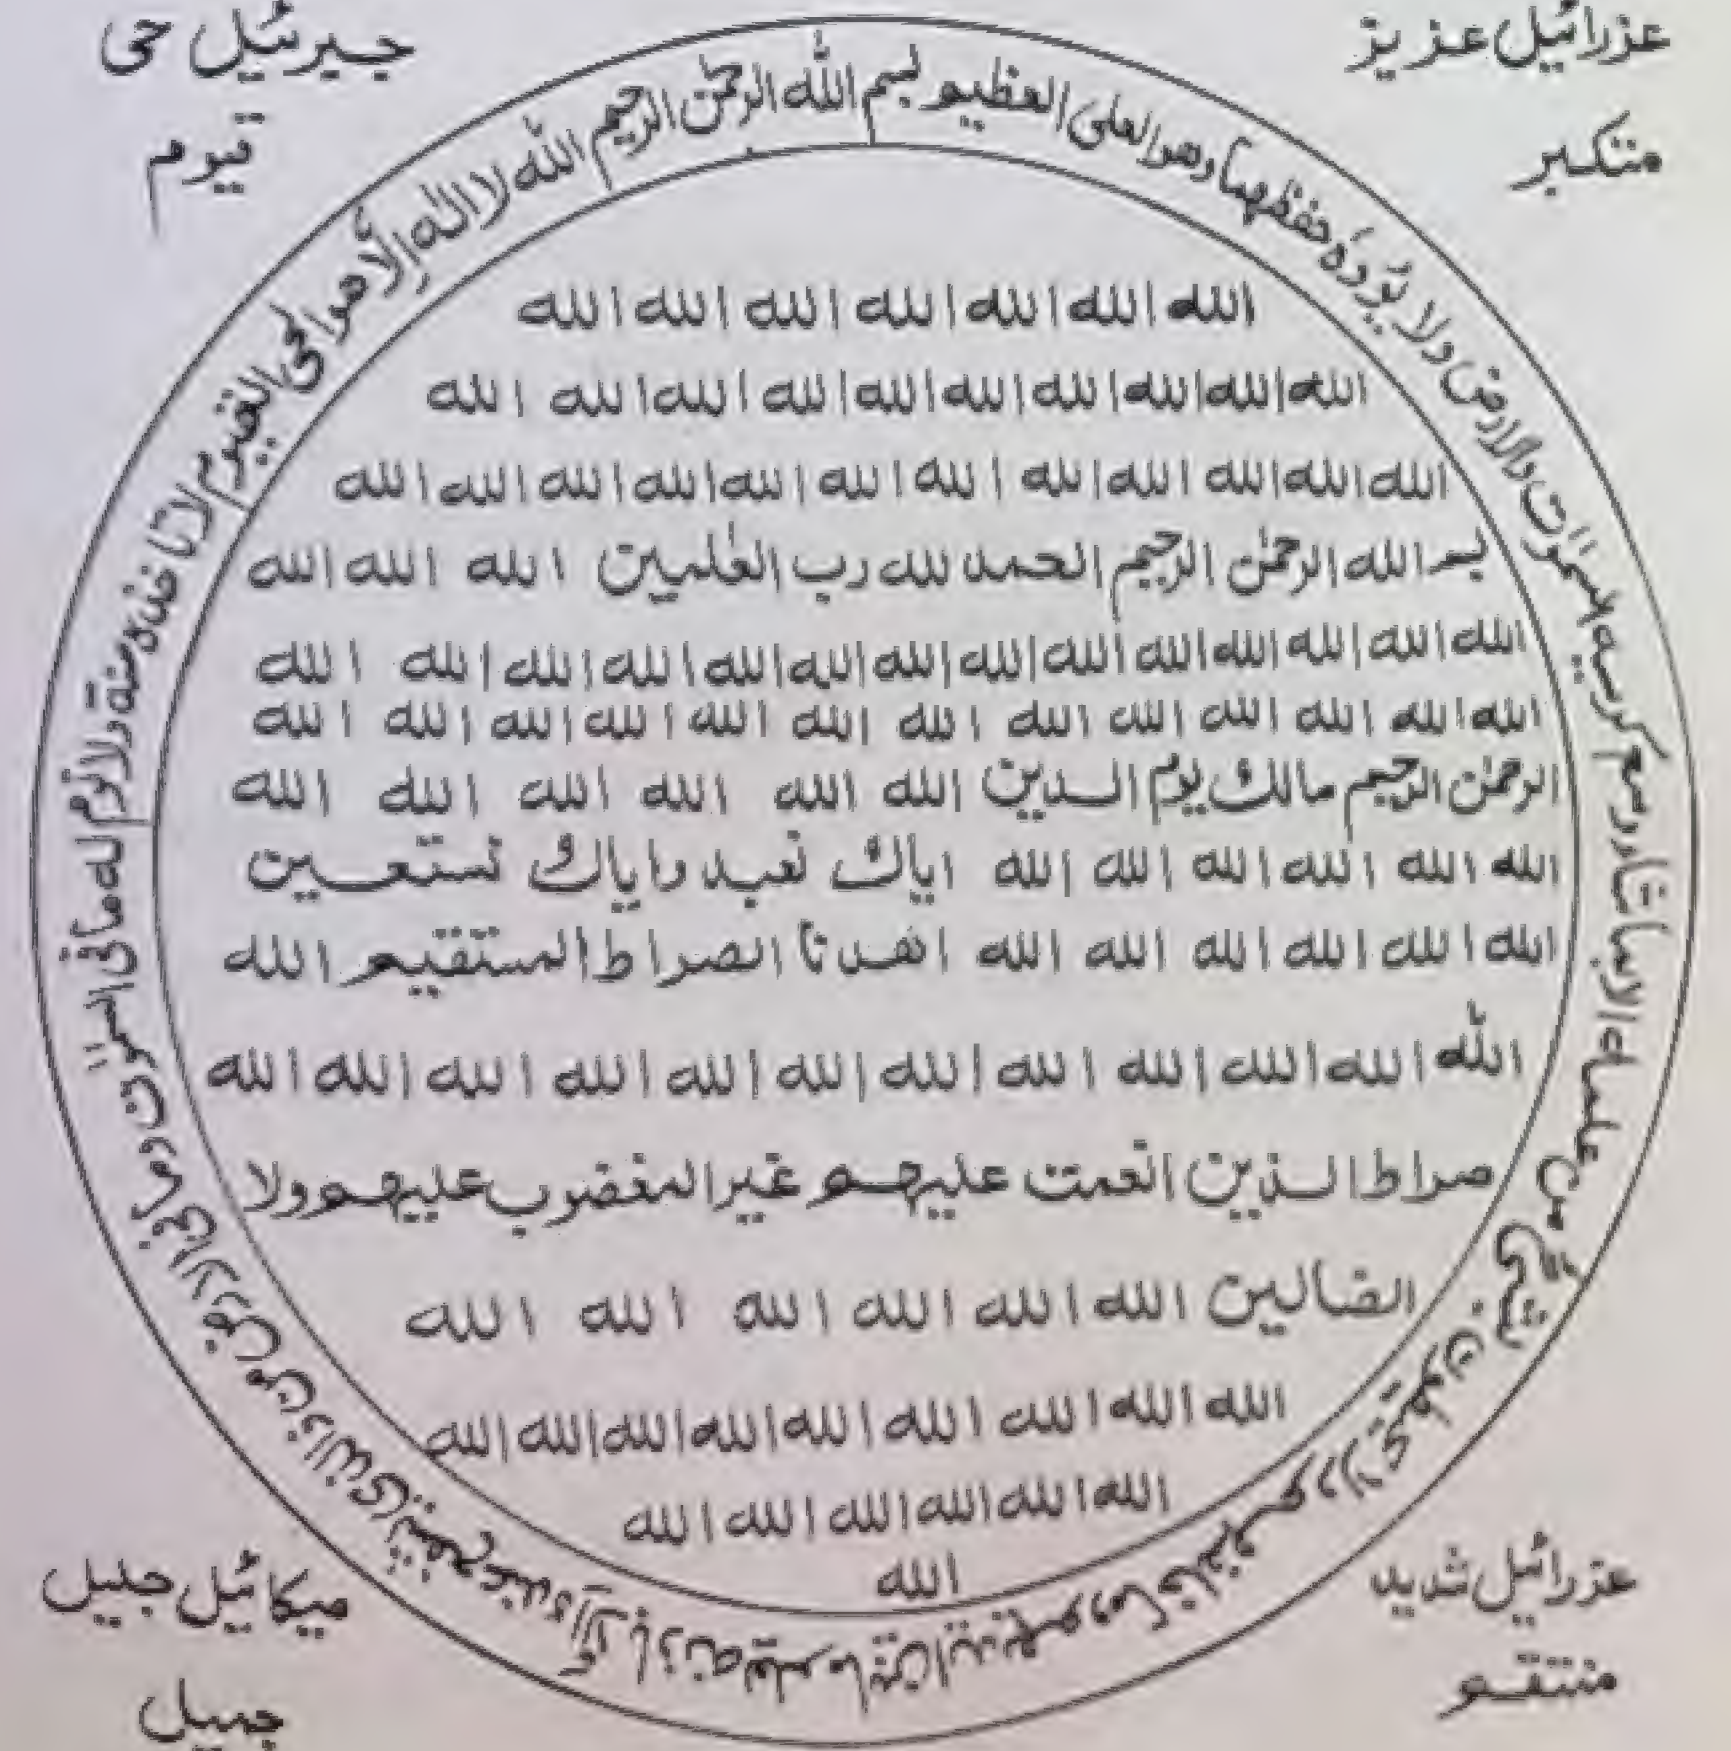 عزرائيل عزيز
متكبر
جبرئيل حى
قيوم
بسم الله الرحمن الرحيم الله لا اله إلا هو الحى القيوم لا تاخذه سنة ولا نوم له ما فى السمٰوٰت وما فى الارض من ذا الذى يشفع عنده إلا باذنه يعلم ما بين ايديهم وما خلفهم ولا يحيطون بشىء من علمه الا بما شاء وسع كرسيه السمٰوٰت والارض ولا يؤده حفظهما وهو العلى العظيم
الله الله الله الله الله الله الله
الله الله الله الله الله الله الله الله الله الله
الله الله الله الله الله الله الله الله الله الله الله الله
بسم الله الرحمٰن الرحيم الحمد لله رب العٰلمين الله الله الله
الله الله الله الله الله الله الله الله الله الله الله الله الله الله
الله الله الله الله الله الله الله الله الله الله الله الله الله
الرحمٰن الرحيم مالك يوم الدين الله الله الله الله الله الله
الله الله الله الله الله الله اياك نعبد واياك نستعين
الله الله الله الله الله الله اهدنا الصراط المستقيم الله
الله الله الله الله الله الله الله الله الله الله الله الله
صراط الذين انعمت عليهم غير المغضوب عليهم ولا
الضالين الله الله الله الله الله الله
الله الله الله الله الله الله الله الله الله
الله الله الله الله الله الله
الله
عزرائيل شديد
منتقم
ميكائيل جليل
جبيل